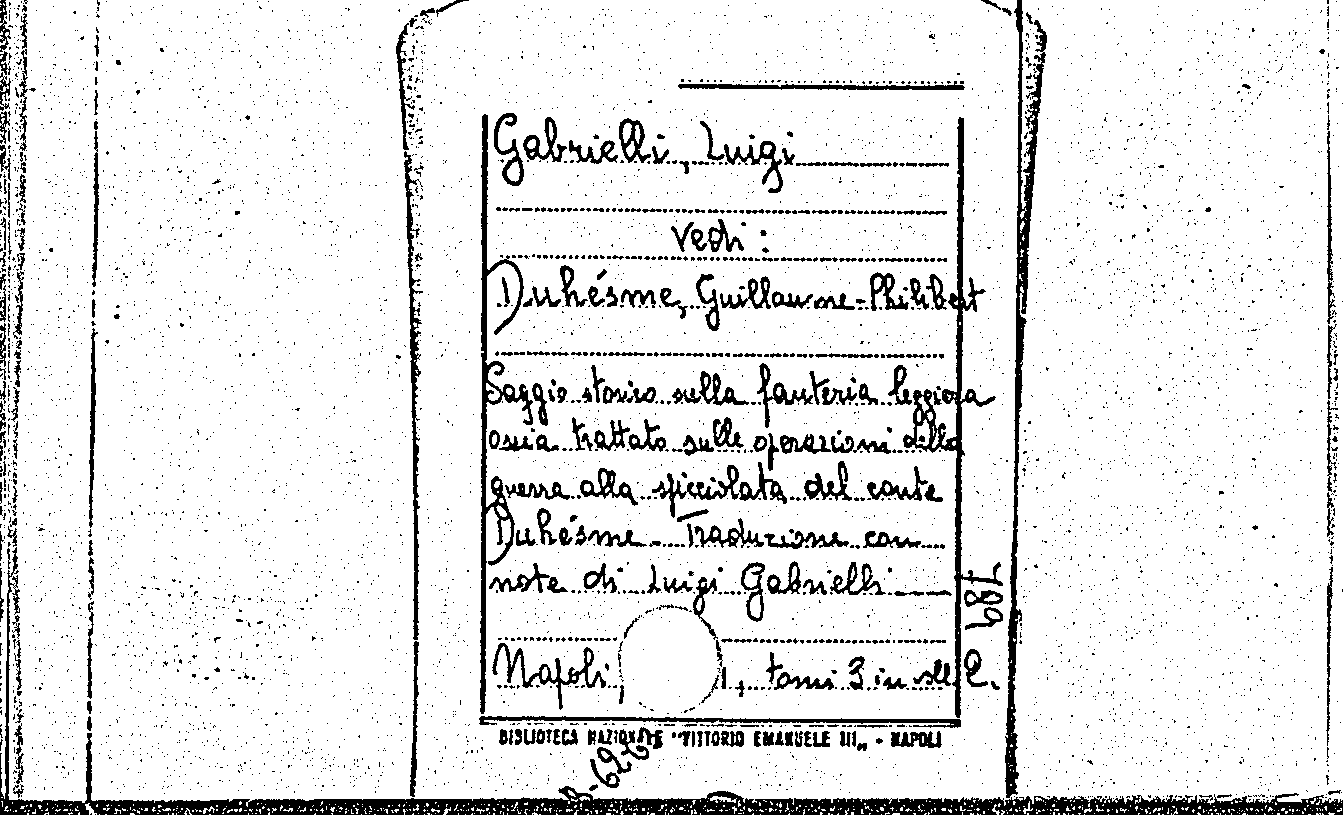 Gabrielli, Luigi
Vedi:
Duhésme, Guillaume-Philibert
Saggio storico sulla fanteria leggiera
ossia trattato sulle operazioni della
guerra alla spicciolata del conte
Duhésme - Traduzione con
note di Luigi Gabrielli
Napoli, 1, tomi 3 in vll. 2.
BIBLIOTECA NAZIONALE "VITTORIO EMANUELE III" - NAPOLI